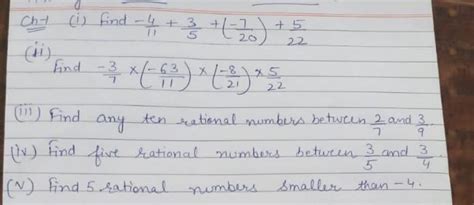 Ch-1 (i) Find -4/11 + 3/5 + (-7/20) + 5/22
(ii) Find -3/7 × (-63/11) × (-8/21) × 5/22
(iii) Find any ten rational numbers between 2/7 and 3/9.
(iv) Find five rational numbers between 3/5 and 3/4.
(v) Find 5 rational numbers smaller than -4.